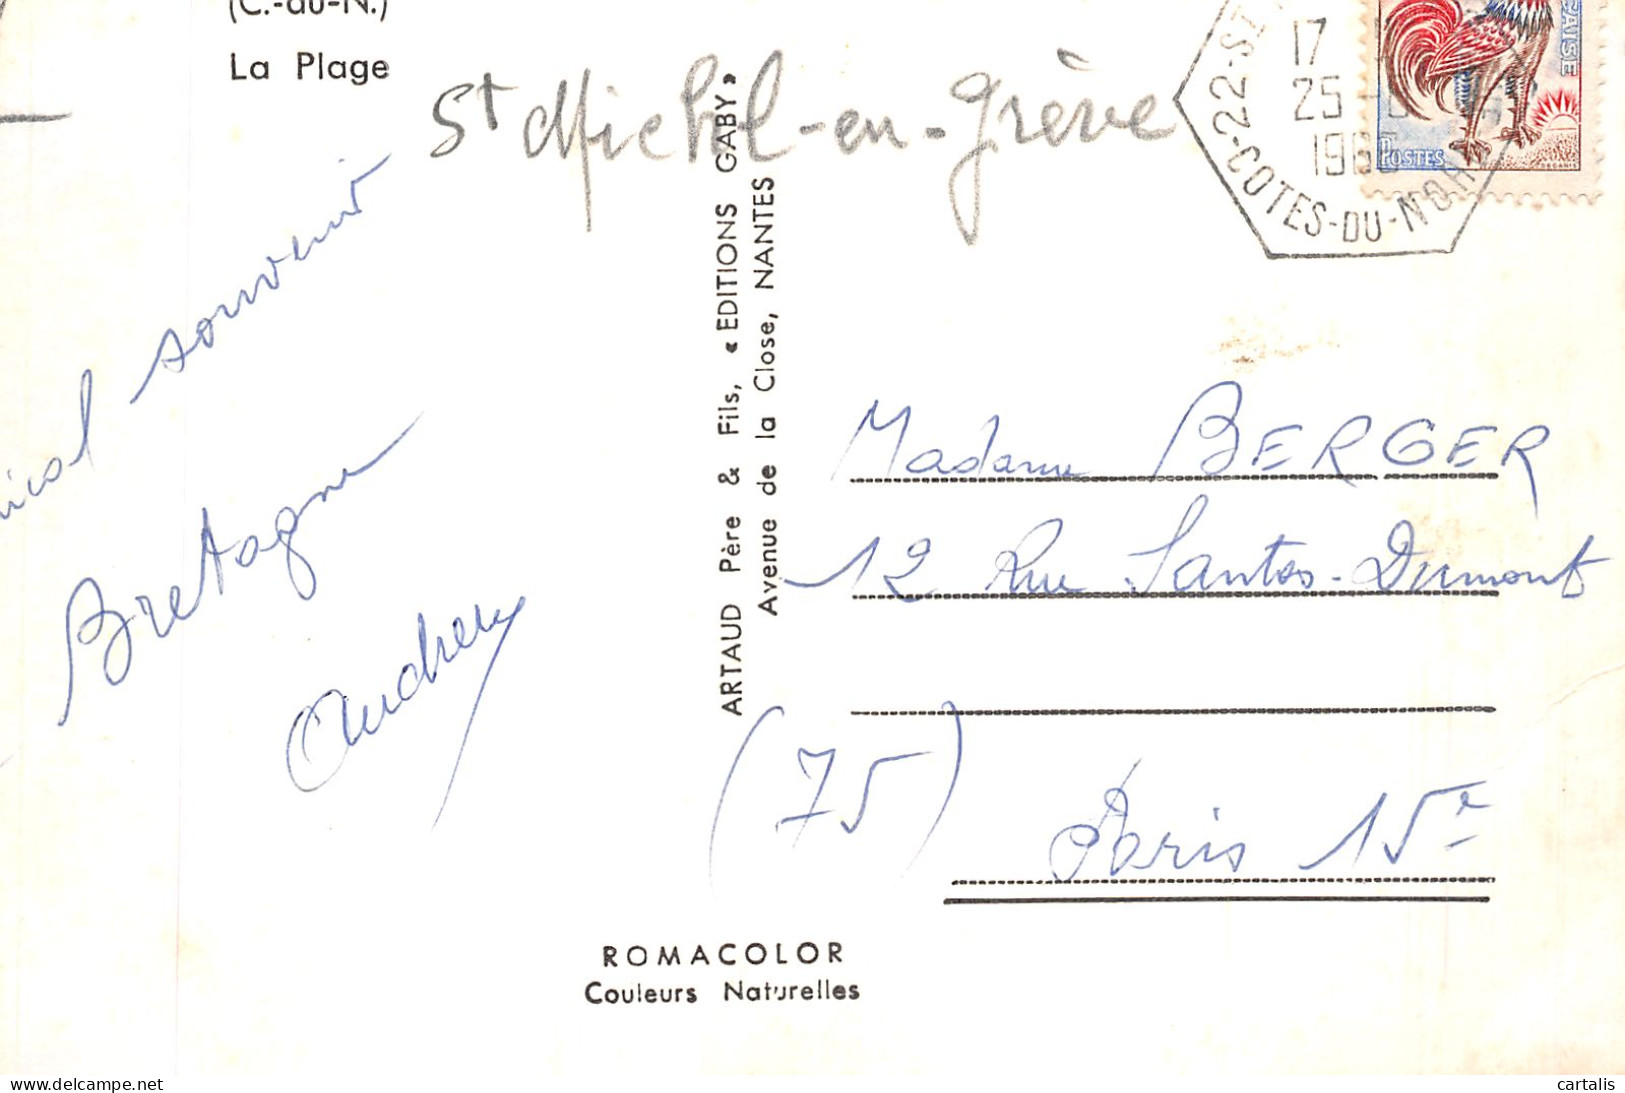 (C.-du-N.)
La Plage
St Michel-en-Grève
souvenir
Bretagne
ARTAUD Père & Fils, « EDITIONS GABY »
Avenue de la Close, NANTES
17
25
22
COTES-DU-NORD
POSTES
Madame BERGER
12 Rue Santos-Dumont
(75)
Paris 15e
ROMACOLOR
Couleurs Naturelles
delcampe.net
cartalis